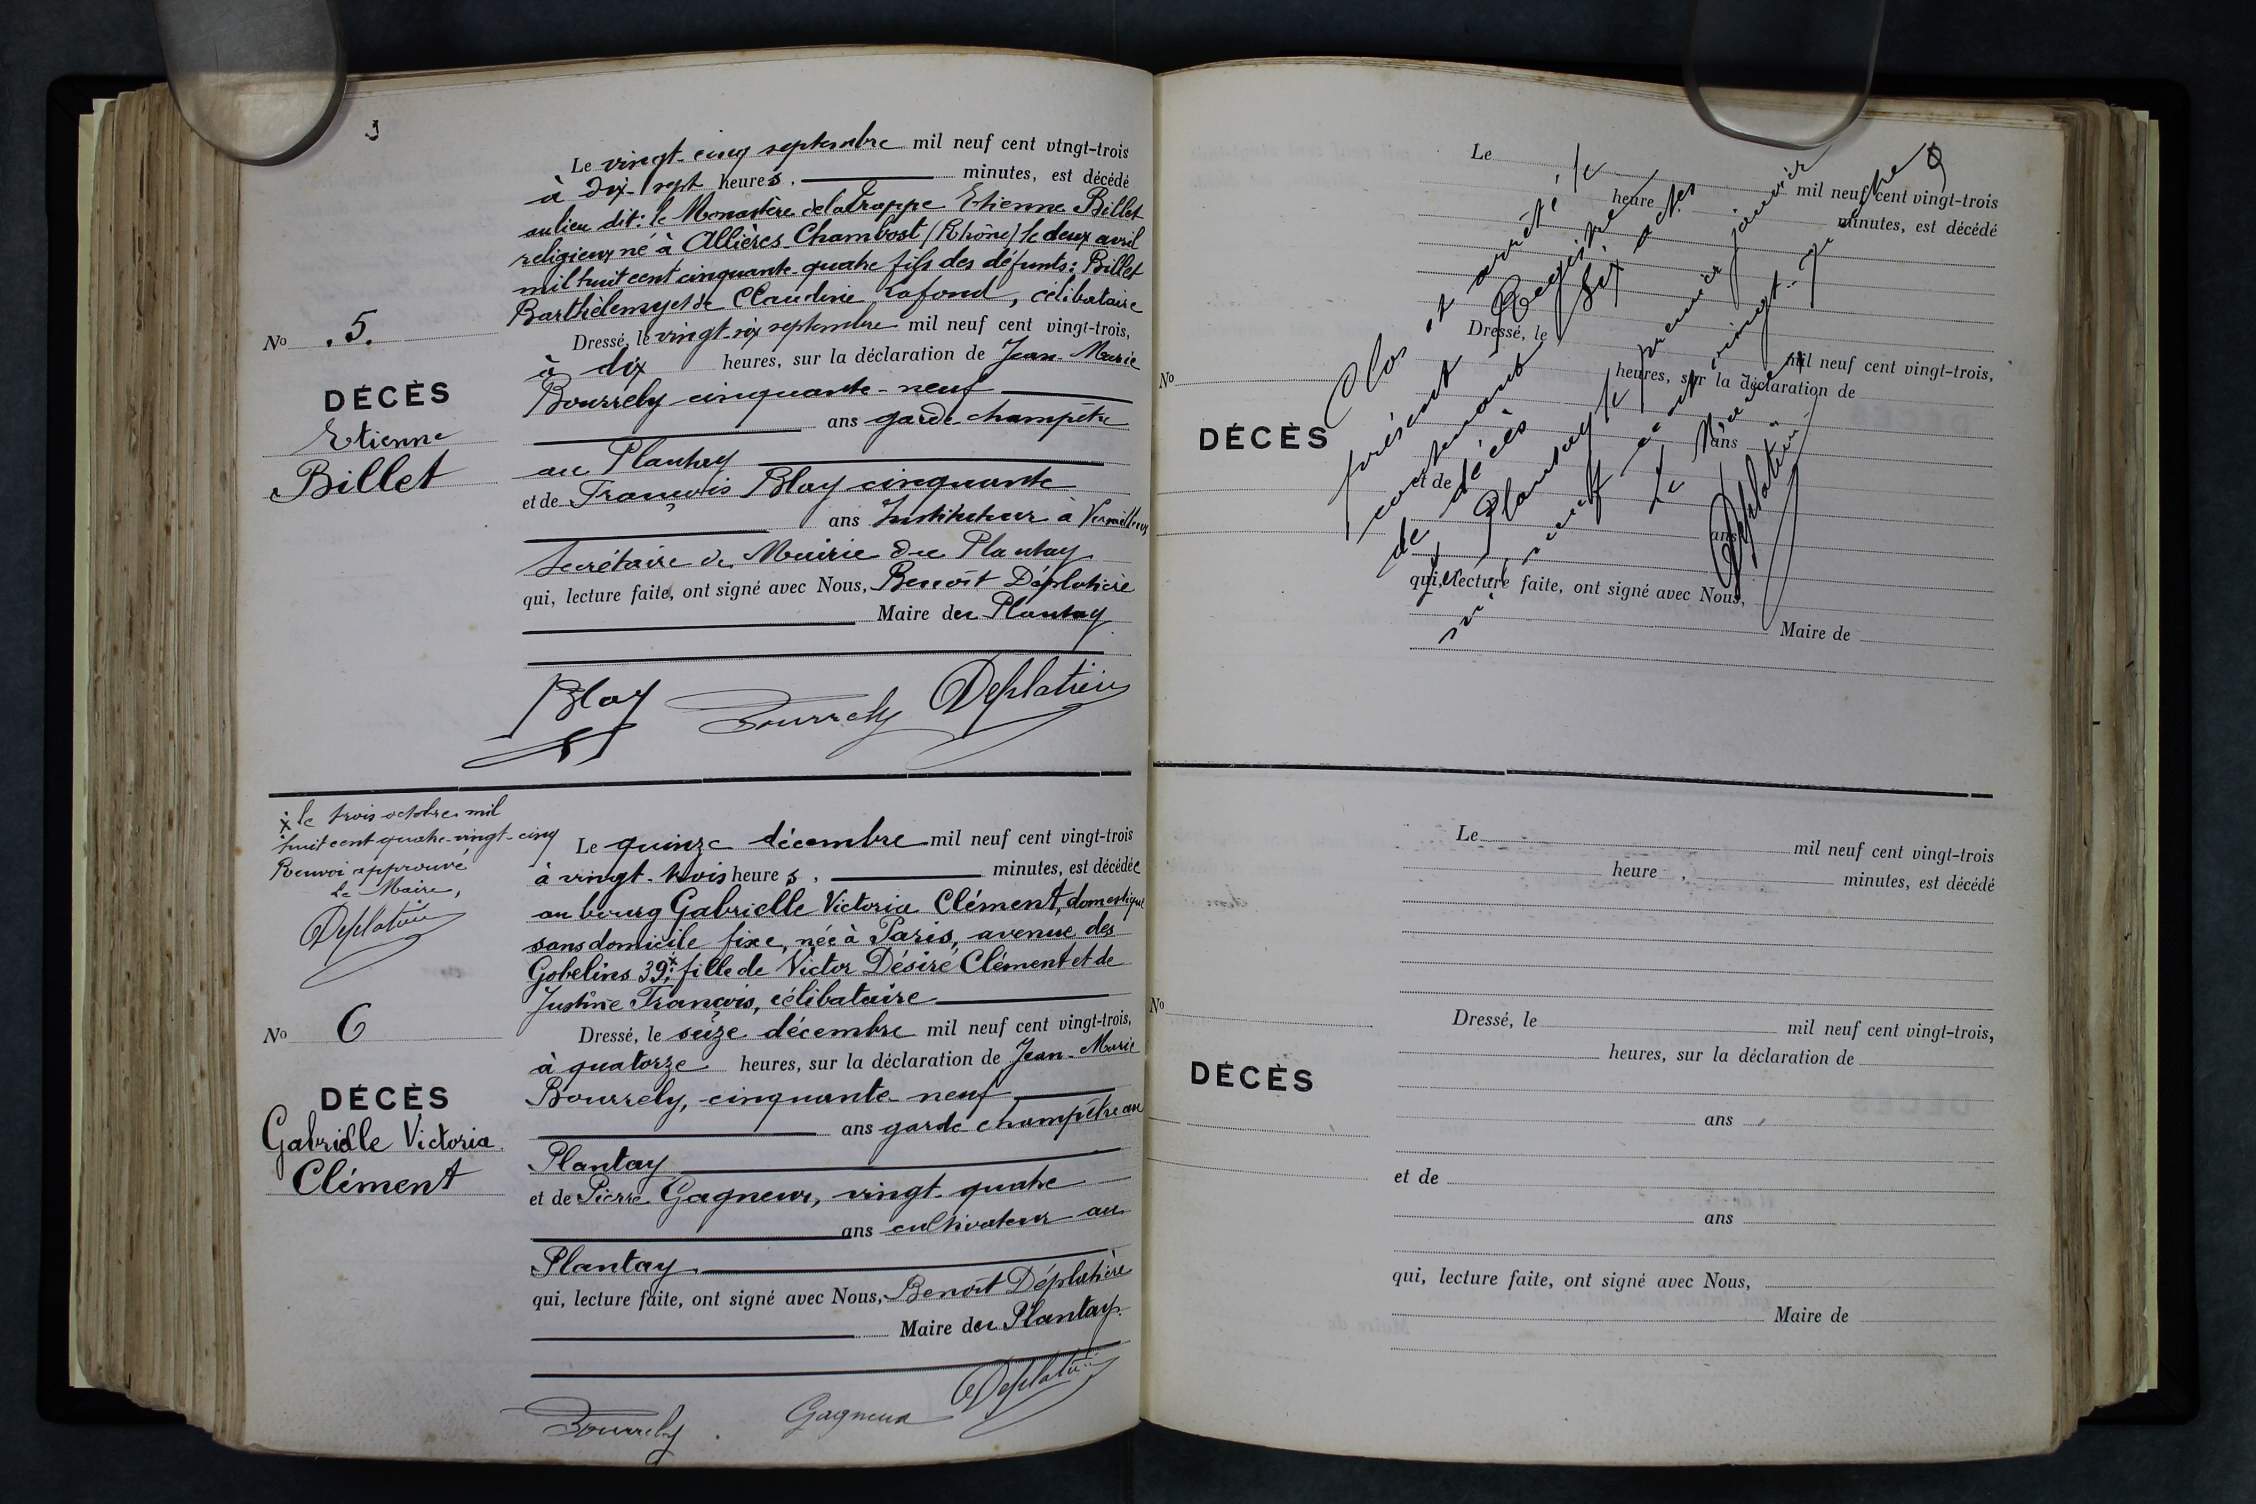 Le vingt-cinq septembre mil neuf cent vingt-trois
à dix-sept heures, minutes, est décédé
au lieu dit: le Monastère de la Trappe Etienne Billet
religieux né à Allières Chambost (Rhône) le deux avril
mil huit cent cinquante-quatre fils des défunts: Billet
Barthélemy et de Claudine Lafond, célibataire
No .5.
Dressé, le vingt-six septembre mil neuf cent vingt-trois,
à dix heures, sur la déclaration de Jean-Marie
DÉCÈS
Etienne
Billet
Bourrely cinquante-neuf
ans garde champêtre
au Plantay
et de François Blay cinquante
ans Instituteur à Versailleux
Secrétaire de Mairie du Plantay
qui, lecture faite, ont signé avec Nous, Benoît Déplatière
Maire du Plantay
Blay Bourrely Déplatière
x le trois octobre mil
huit cent quatre-vingt-cinq
Renvoi approuvé
Le Maire,
Déplatière
Le quinze décembre mil neuf cent vingt-trois
à vingt-trois heures, minutes, est décédée
au bourg Gabrielle Victoria Clément, domestique
sans domicile fixe, née à Paris, avenue des
Gobelins 39,x fille de Victor Désiré Clément et de
Justine François, célibataire
No 6
Dressé, le seize décembre mil neuf cent vingt-trois,
à quatorze heures, sur la déclaration de Jean-Marie
DÉCÈS
Gabrielle Victoria
Clément
Bourrely, cinquante-neuf
ans garde champêtre au
Plantay
et de Pierre Gagneur, vingt-quatre
ans cultivateur au
Plantay
qui, lecture faite, ont signé avec Nous, Benoît Déplatière
Maire du Plantay.
Bourrely Gagneur Déplatière
Le
mil neuf cent vingt-trois
heure , minutes, est décédé
Dressé, le mil neuf cent vingt-trois,
heures, sur la déclaration de
No
DÉCÈS
ans
et de
ans
qui, lecture faite, ont signé avec Nous,
Maire de
Clos et arrêté, le
présent Registre
contenant six actes
de décès
Plantay le premier janvier
mil neuf cent vingt-quatre
Le Maire
Déplatière
Le mil neuf cent vingt-trois
heure , minutes, est décédé
No
Dressé, le mil neuf cent vingt-trois,
heures, sur la déclaration de
DÉCÈS
ans
et de
ans
qui, lecture faite, ont signé avec Nous,
Maire de